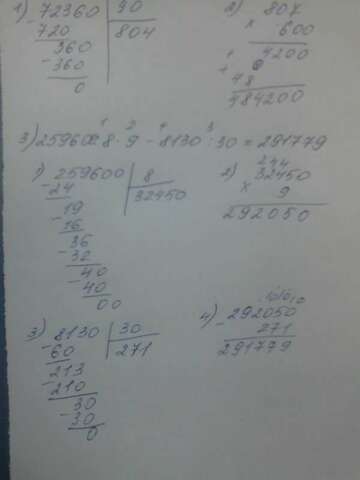 1) 72360 | 90
720 | 804
- 360
- 360
0
2) 807
x 600
+ 4200
+ 0
48
484200
3) 259600 : 8 · 9 - 8130 : 30 = 291779
1) - 259600 | 8
24 | 32450
- 19
16
- 36
32
- 40
40
00
2) 244
32450
x 9
292050
3) - 8130 | 30
60 | 271
- 213
210
- 30
30
0
4) 10 10 10
- 292050
271
291779